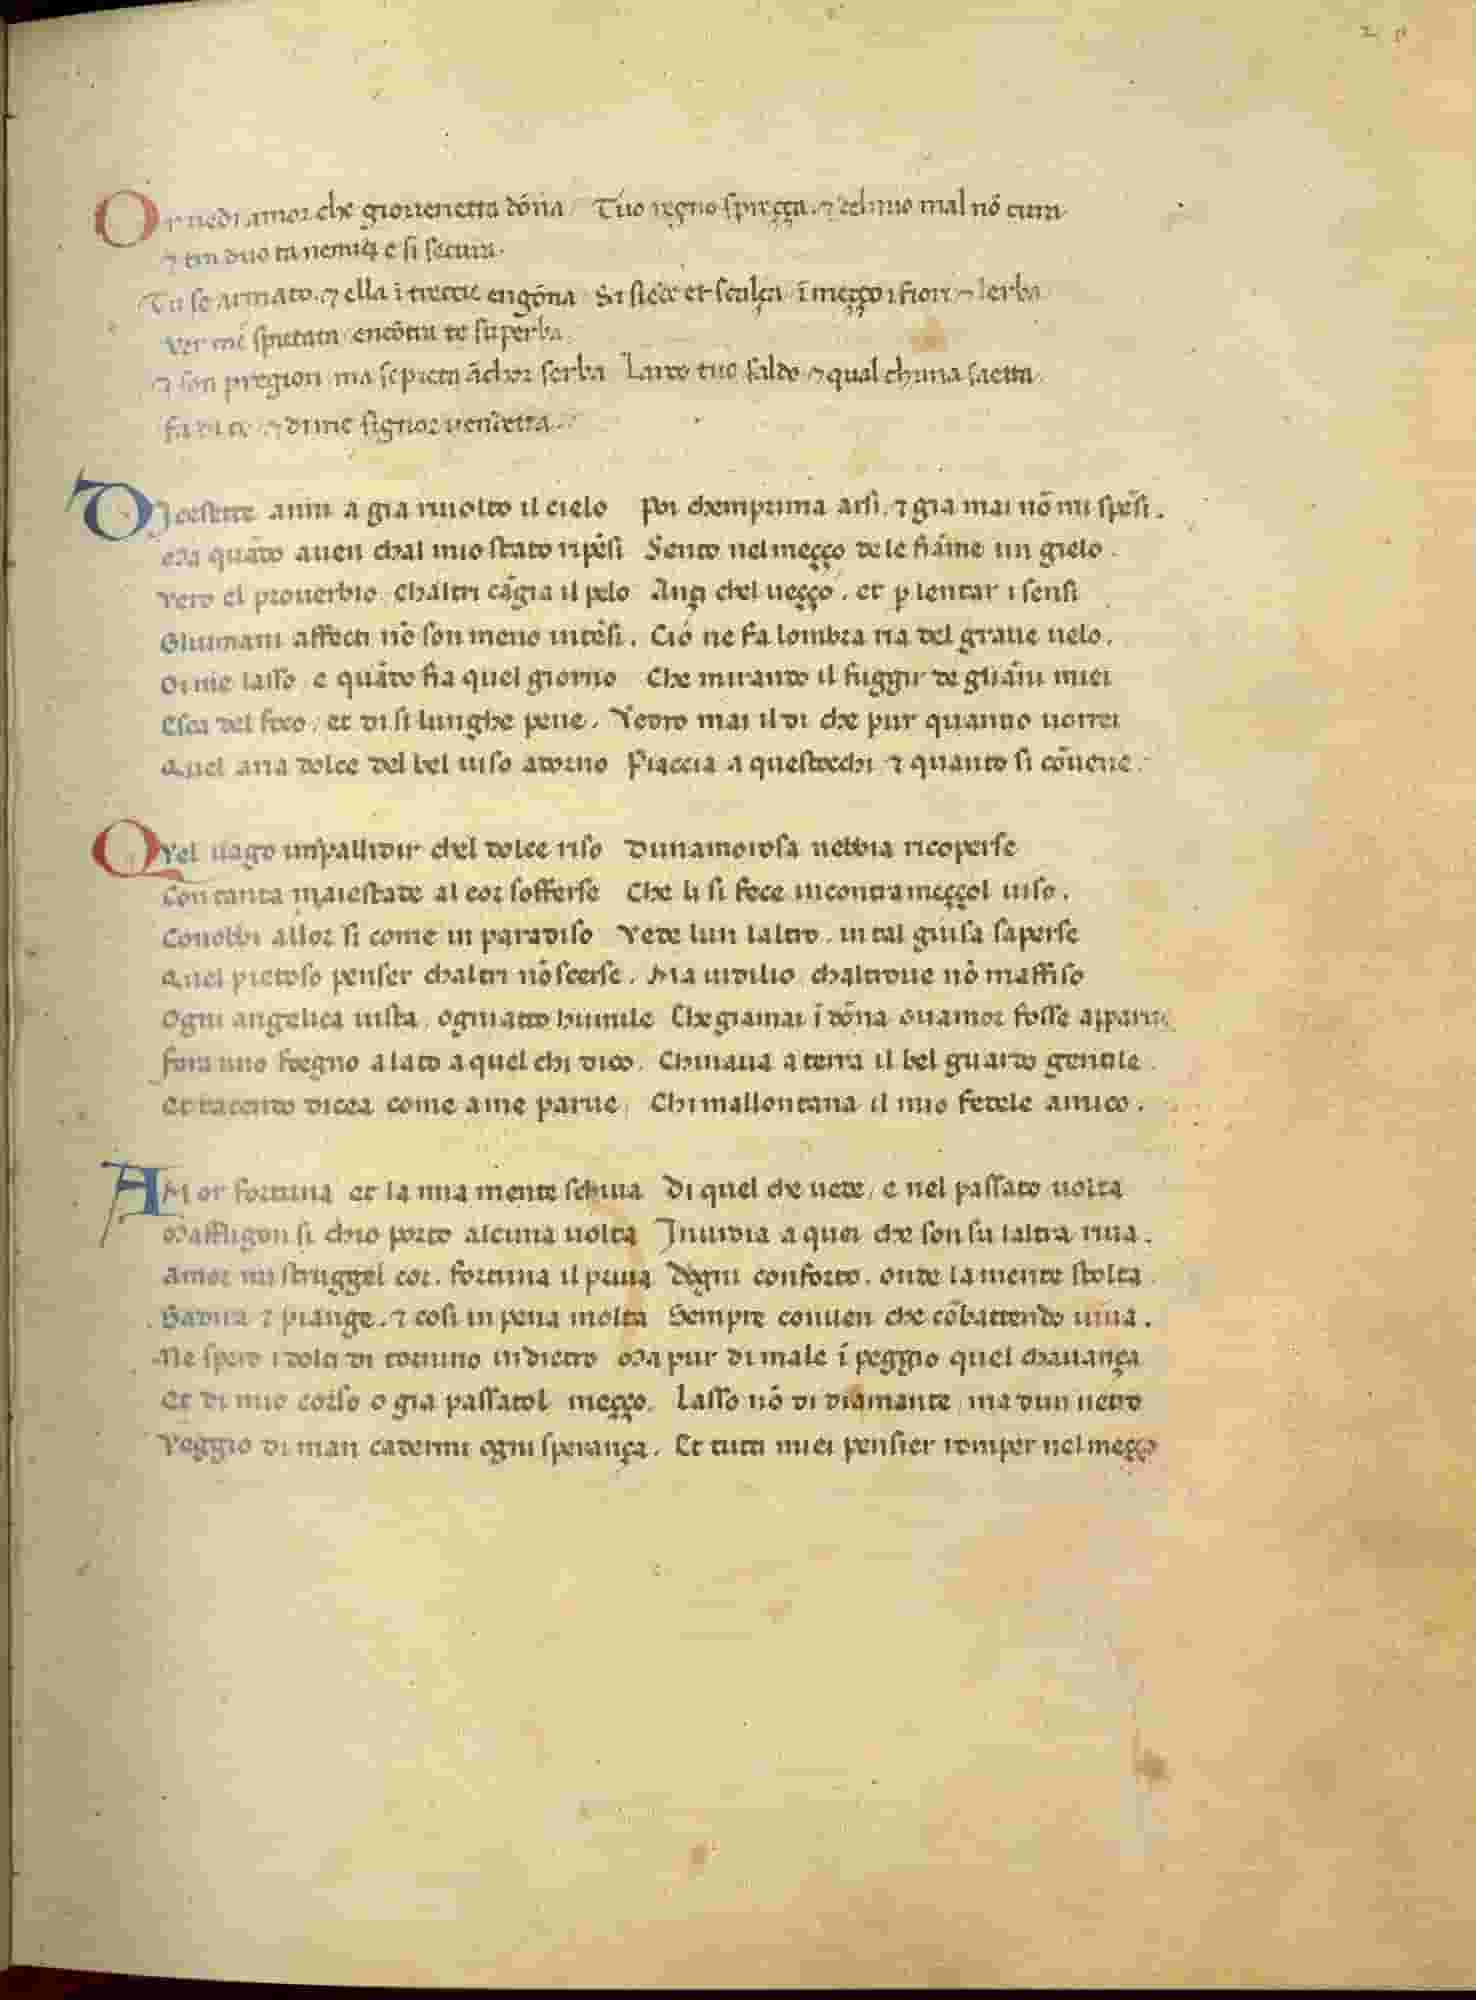 Or uedi amor che giouenetta dōna Tuo regno spreçça. ⁊ delmio mal nō cura
⁊ tra duo ta nemici e si secura.
Tu se armato. ⁊ ella ī treccie engōna Si siede et scalça ī meçço i fiori ⁊ lerba
Ver me spietata encōtra te superba.
I son pregion ma se pieta āchor serba Larco tuo saldo ⁊ qual chuna saetta
fa di te ⁊ di me signor uendetta.
DIcesette anni a gia riuolto il cielo Poi chemprima arsi. ⁊ gia mai nō mi spēsi.
Ma quādo auen chal mio stato ripēsi Sento nel meçço de le fiāme un gielo.
Vero el prouerbio. chaltri cāgia il pelo Ançi chel ueçço. et ꝑ lentar i sensi
Gliumani affecti nō son meno intēsi. Cio ne fa lombra ria del graue uelo.
Oi me lasso e quādo fia quel giorno Che mirando il fuggir de gliāni miei
Esca del foco. et di si lunghe pene. Vedro mai il di che pur quanto uorrei
Quel aria dolce del bel uiso adorno Piaccia a questocchi ⁊ quanto si cōuene.
QVel uago impallidir chel dolce riso Dunamorosa nebbia ricoperse
Con tanta maiestade al cor sofferse Che li si fece incontra meççol uiso.
Conobbi allor si come in paradiso Vede lun laltro. in tal guisa saperse
Quel pietoso penser chaltri nō scerse. Ma uidilio. chaltroue nō maffiso
Ogni angelica uista. ogniatto humile Che giamai ī dōna ouamor fosse apparue
fora uno sdegno a lato a quel chi dico. Chinaua a terra il bel guardo gentile.
Et tacendo dicea come a me parue. Chi mallontana il mio fedele amico.
AMor fortuna et la mia mente schiua Di quel che uede. e nel passato uolta
Maffligon si chio porto alcuna uolta Inuidia a quei che son su laltra riua.
Amor mi struggel cor. fortuna il priua Dogni conforto. onde la mente stolta
Sadira ⁊ piange. ⁊ cosi in pena molta Sempre conuen che cōbattendo uiua.
Ne spero i dolci di tornino indietro Ma pur di male ī peggio quel chauança
Et di mio corso o gia passatol meçço. Lasso nō di diamante ma dun uetro
Veggio di man cadermi ogni sperança. Et tutti miei pensier romper nel meçço